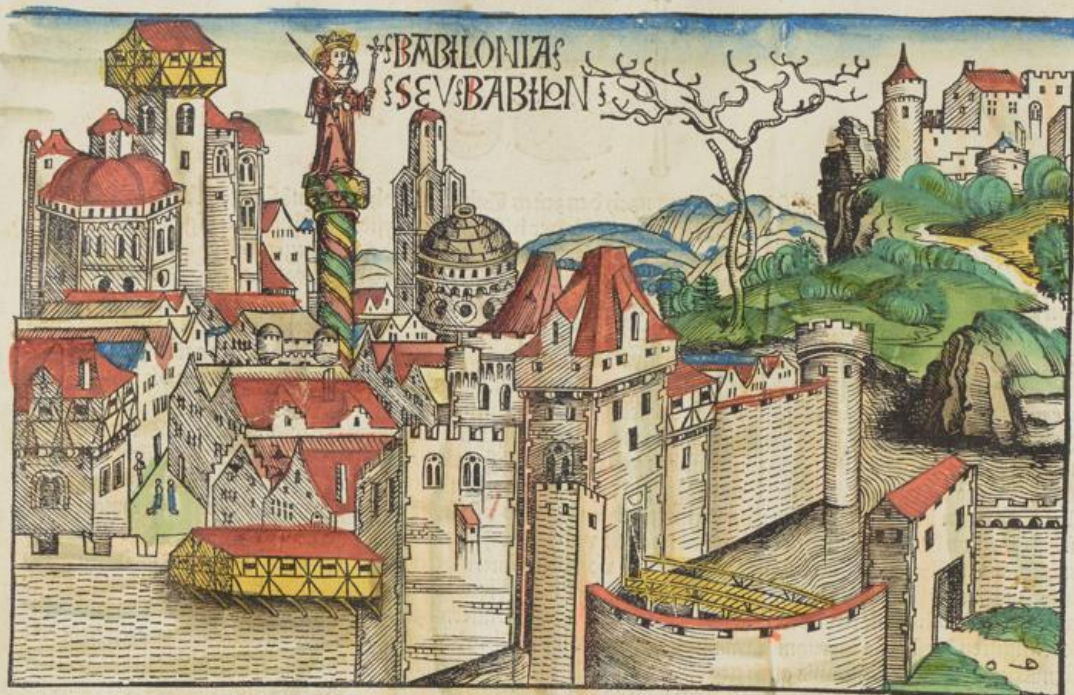 BABILONIA
SEV BABILON